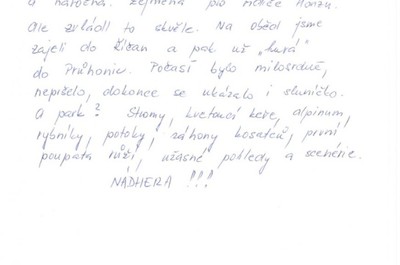 a náročná. Zejména pro řidiče Honzu.
Ale zvládl to skvěle. Na oběd jsme
zajeli do Říčan a pak už „hurá"
do Průhonic. Počasí bylo milosrdné,
nepršelo, dokonce se ukázalo i sluníčko.
A park? Stromy, kvetoucí keře, alpinum,
rybníky, potoky, záhony kosatců, první
poupata růží, úžasné pohledy a scenérie.
NÁDHERA !!!